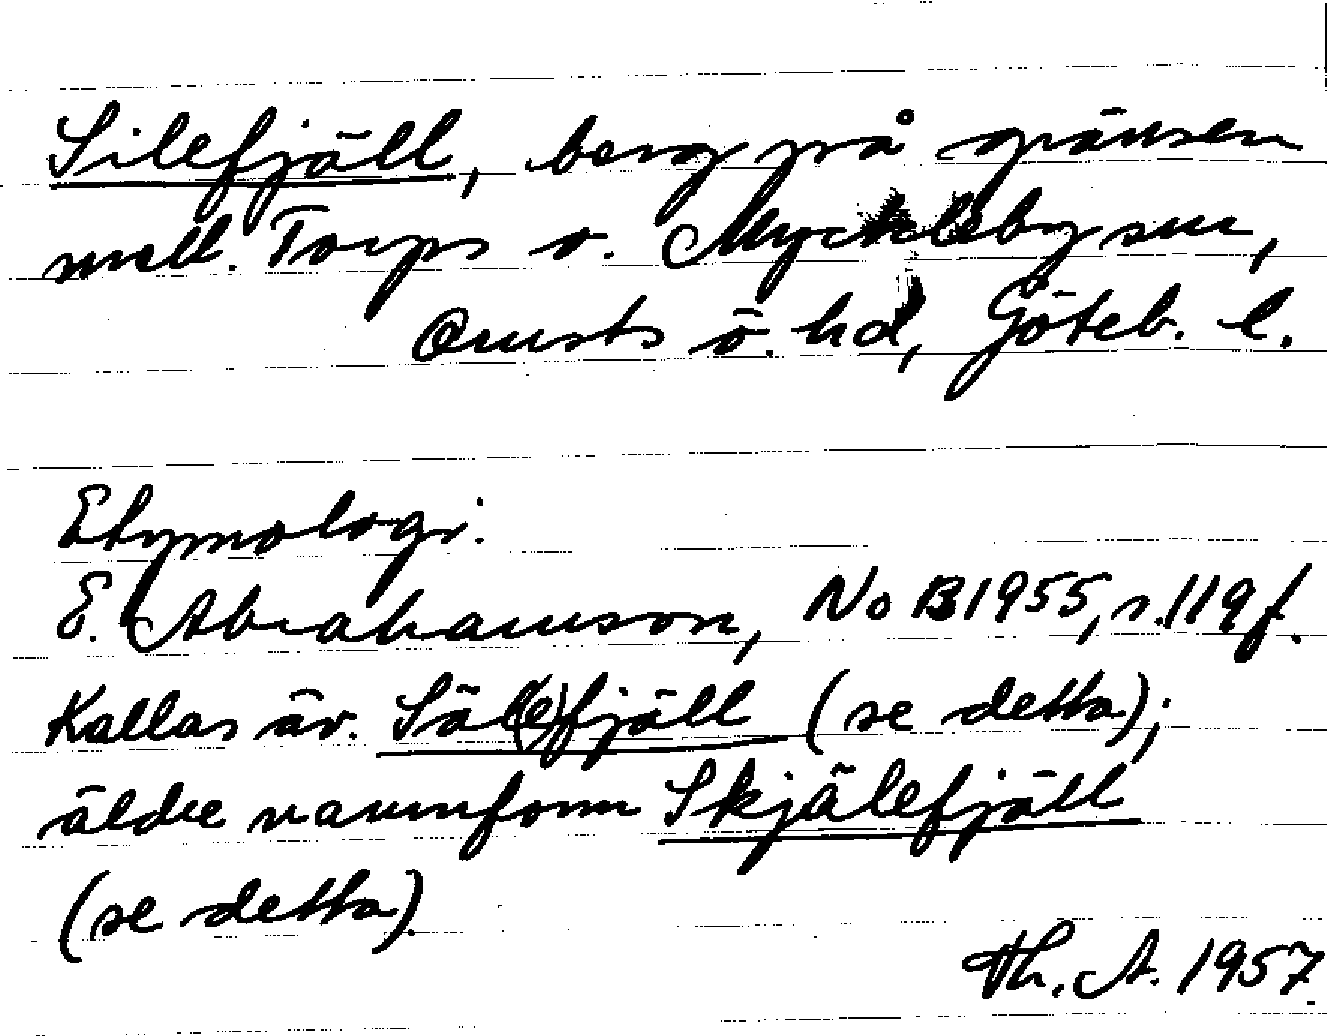 Silefjäll, berg på gränsen
mell. Torps o. Myckleby snr,
Orusts ö. hd, Göteb. l.
Etymologi:
E. Abrahamson, No B 1955, s. 119 f.
Kallas äv. Säl(e)fjäll (se detta);
äldre namnform Skjälefjäll
(se detta).
Th. A. 1957